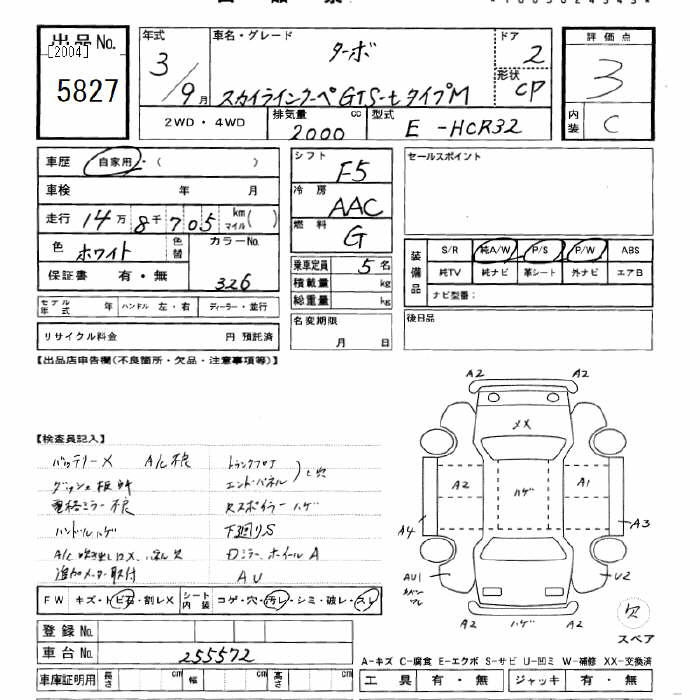 出品No.
[2004]
5827
年式
3/9月
車名・グレード
ターボ
スカイラインクーペGTS-tタイプM
ドア
2
形状
CP
評価点
3
内装
C
2WD・4WD
排気量
2000
cc
型式
E-HCR32
車歴 自家用・( )
車検 年 月
走行 14万8千705 km マイル( )
色 ホワイト 色替
カラーNo.
326
保証書 有・無
モデル年式 年 ハンドル 左・右 ディーラー・並行
リサイクル料金 円 預託済
シフト F5
冷房 AAC
燃料 G
乗車定員 5名
積載量 kg
総重量 kg
名変期限
月 日
セールスポイント
装備品
S/R 純A/W P/S P/W ABS
純TV 純ナビ 革シート 外ナビ エアB
ナビ型番:
後日品
【出品店申告欄(不良箇所・欠品・注意事項等)】
【検査員記入】
バッテリーX A/C不良
電格ミラー不良
ハンドルハゲ
追加メーター取付
トランクフロア
エンドパネル
穴
Rスポイラーハゲ
下廻りS
ロミラー、ホイールA
AU
FW キズ・トビ石・割レX シート内装 コゲ・穴・汚レ・シミ・破レ・スレ
登録No.
車台No. 255572
車庫証明用 長さ cm 幅 cm 高さ cm
A2 A2
XX
A2 ハゲ A1
A4 A3
AU1 U2
A2 ハゲ A2
欠
スペア
A-キズ C-腐食 E-エクボ S-サビ U-凹ミ W-補修 XX-交換済
工具 有・無 ジャッキ 有・無